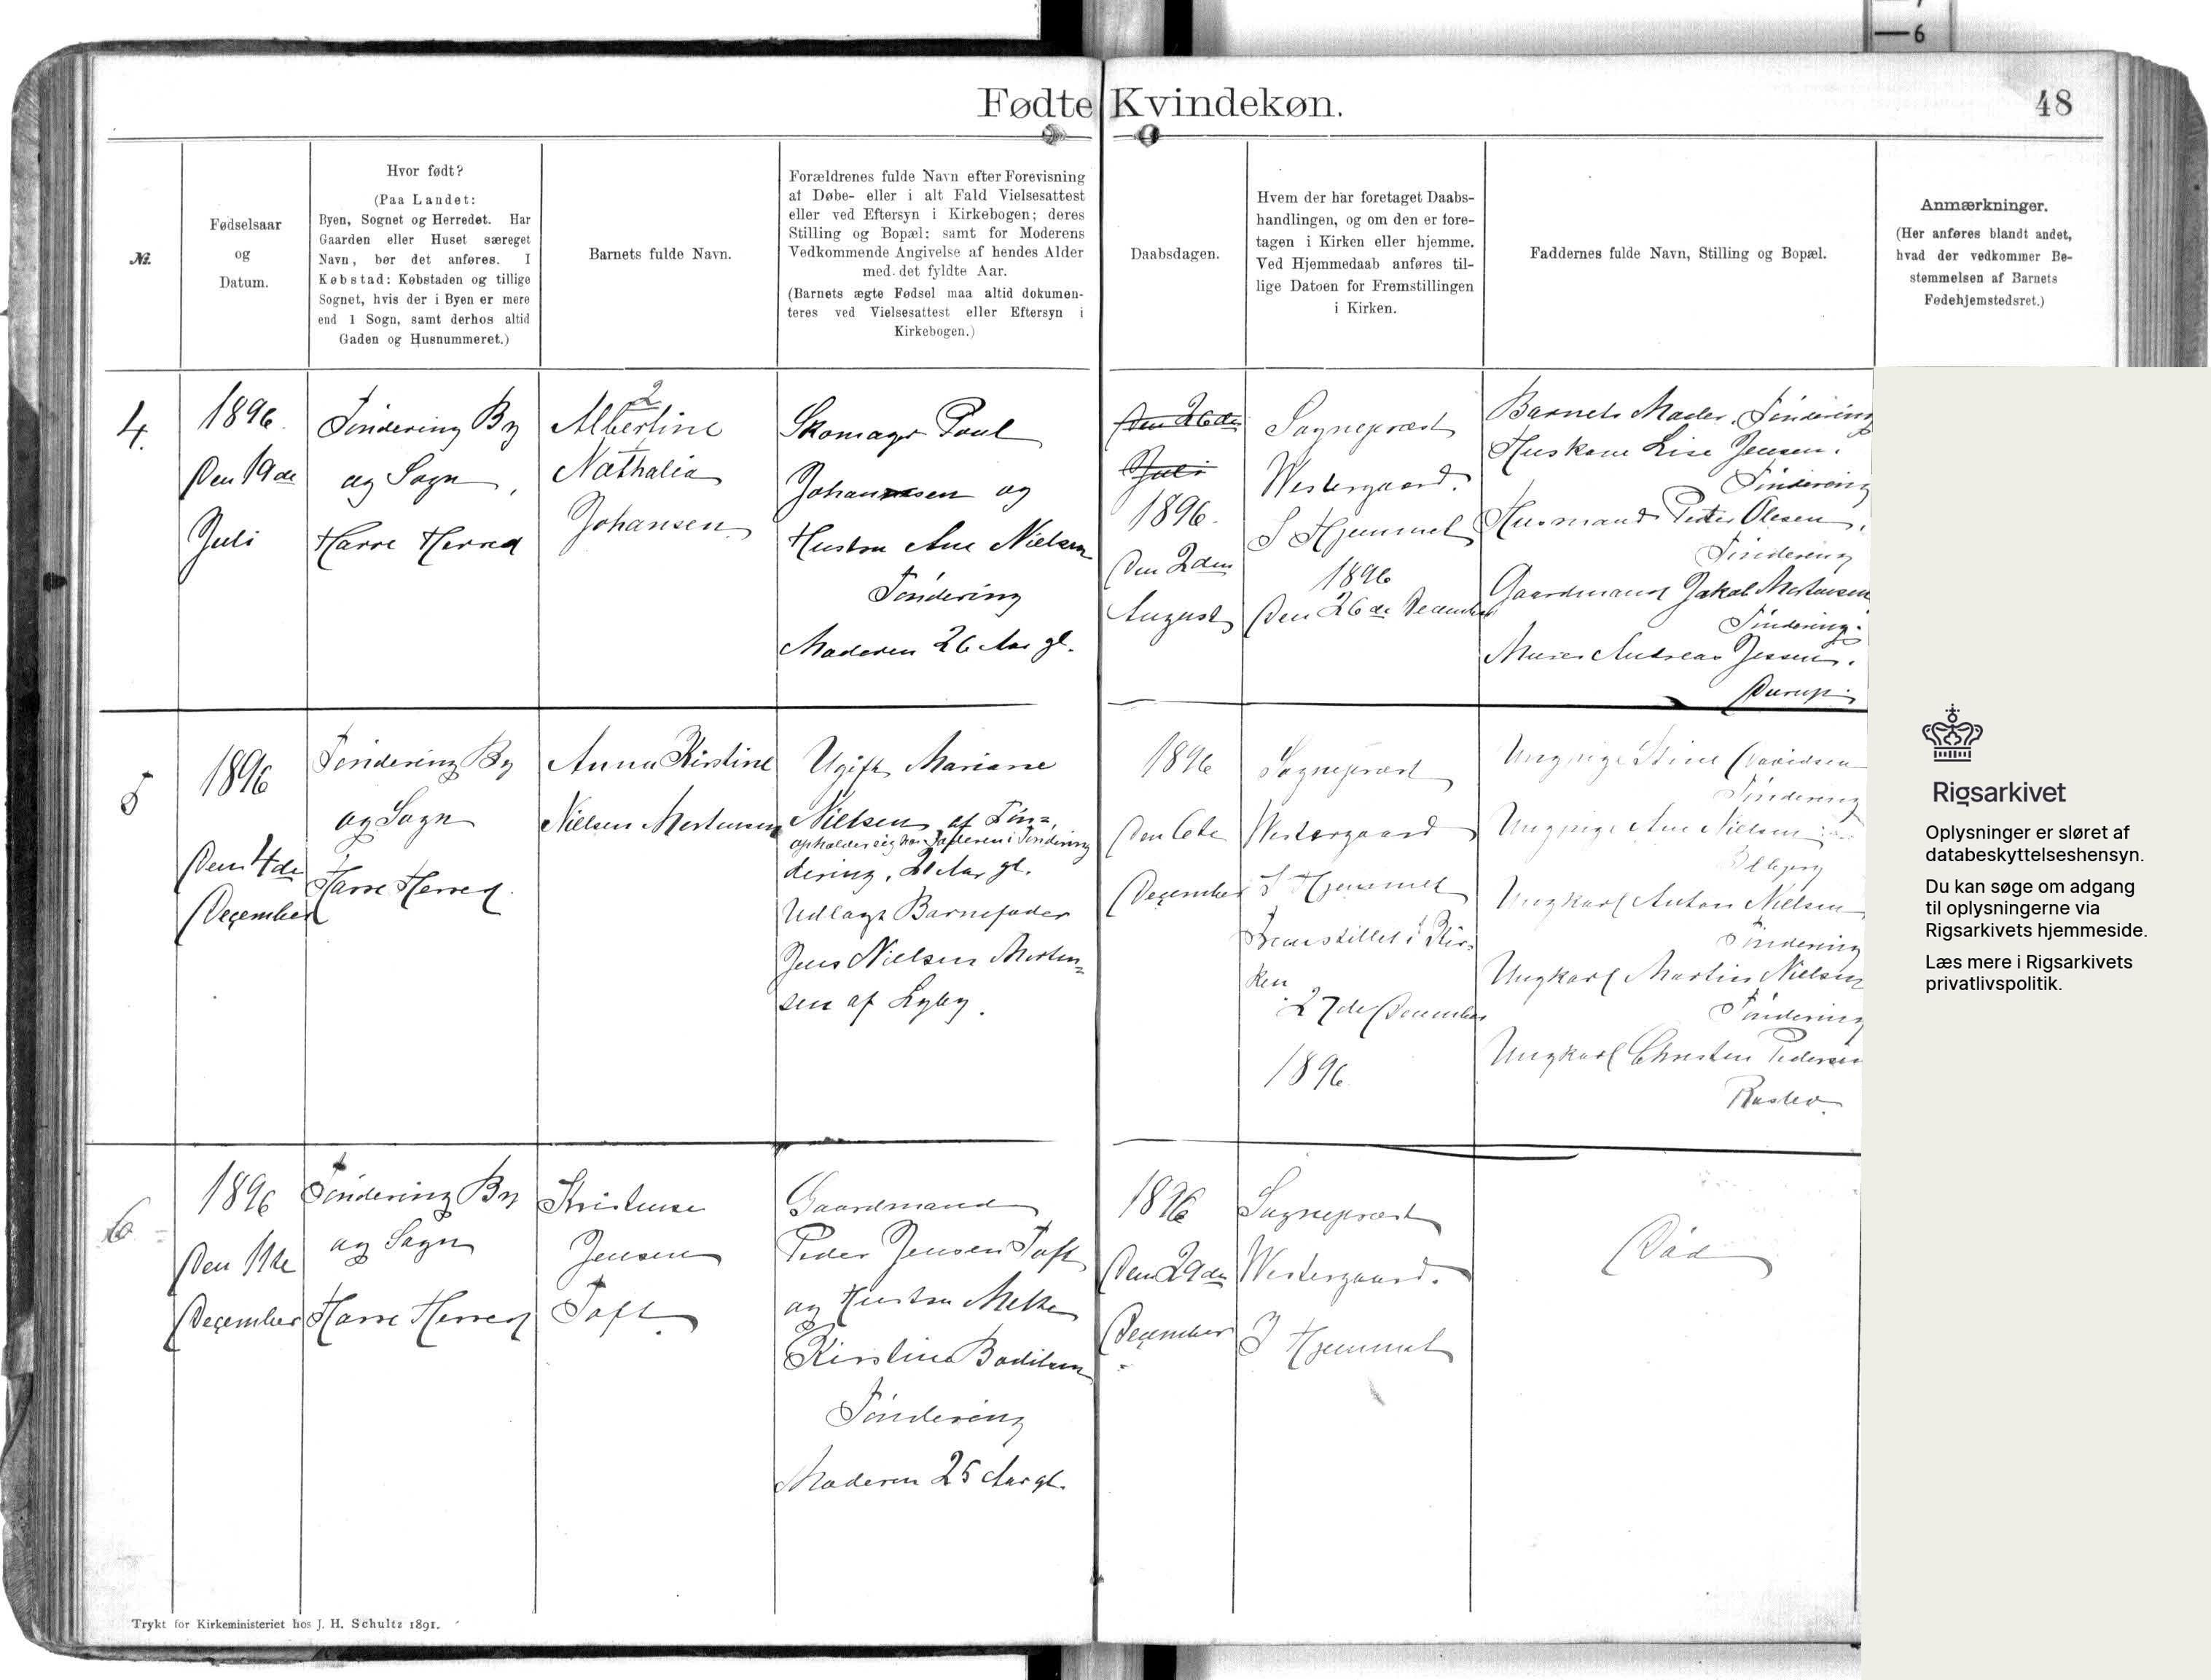 6
Fødte Kvindekøn.
48
Nr.
Fødselsaar
og
Datum.
Hvor født?
(Paa Landet:
Byen, Sognet og Herredet. Har
Gaarden eller Huset særeget
Navn, bør det anføres. I
Købstad: Købstaden og tillige
Sognet, hvis der i Byen er mere
end 1 Sogn, samt derhos altid
Gaden og Husnummeret.)
Barnets fulde Navn.
Forældrenes fulde Navn efter Forevisning
af Døbe- eller i alt Fald Vielsesattest
eller ved Eftersyn i Kirkebogen; deres
Stilling og Bopæl: samt for Moderens
Vedkommende Angivelse af hendes Alder
med det fyldte Aar.
(Barnets ægte Fødsel maa altid dokumen-
teres ved Vielsesattest eller Eftersyn i
Kirkebogen.)
Daabsdagen.
Hvem der har foretaget Daabs-
handlingen, og om den er fore-
tagen i Kirken eller hjemme.
Ved Hjemmedaab anføres til-
lige Datoen for Fremstillingen
i Kirken.
Faddernes fulde Navn, Stilling og Bopæl.
Anmærkninger.
(Her anføres blandt andet,
hvad der vedkommer Be-
stemmelsen af Barnets
Fødehjemstedsret.)
4.
1896.
Den 19de
Juli
Tøndering By
og Sogn,
Harre Herred
2
Albertine
Nathalia
Johansen
Skomager Poul
Johansen og
Hustru Ane Nielsen
Tøndering
Moderen 26 Aar gl.
Den 26de
Juli
1896.
Den 2den
August
Sognepræst
Westergaard.
I Hjemmet
1896
Den 26de December
Barnets Moder, Tøndering
Huskone Lise Jensen.
Tøndering
Husmand Peder Olesen,
Tøndering
Gaardmand Jakob Mortensen
Tøndering.
Murer Andreas Jessen.
Durup.
5
1896
Den 4de
December
Tøndering By
og Sogn
Harre Herred.
Anna Kirstine
Nielsen Mortensen
Ugift Mariane
Nielsen af Tøn-
opholder sig hos Faderen i Tøndering
dering, 21 Aar gl.
Udlagt Barnefader
Jens Nielsen Morten-
sen af Lyby.
1896
Den 6te
December
Sognepræst
Westergaard
I Hjemmet
Fremstillet i Kir-
ken
27de December
1896
Ungpige Stine Davidsen
Tøndering
Ungpige Ane Nielsen
Ungkarl Anton Nielsen
Tøndering
Ungkarl Martin Nielsen
Tøndering
Ungkarl Christen Pedersen
6
1896
Den 11te
December
Tøndering By
og Sogn
Harre Herred
Kristense
Jensen
Toft.
Gaardmand
Peder Jensen Toft
og Hustru Mette
Kirstine Bodilsen
Tøndering
Moderen 25 Aar gl.
1896
Den 29de
December
Sognepræst
Westergaard.
I Hjemmet
Død
Trykt for Kirkeministeriet hos J. H. Schultz 1891.
Rigsarkivet
Oplysninger er sløret af
databeskyttelseshensyn.
Du kan søge om adgang
til oplysningerne via
Rigsarkivets hjemmeside.
Læs mere i Rigsarkivets
privatlivspolitik.